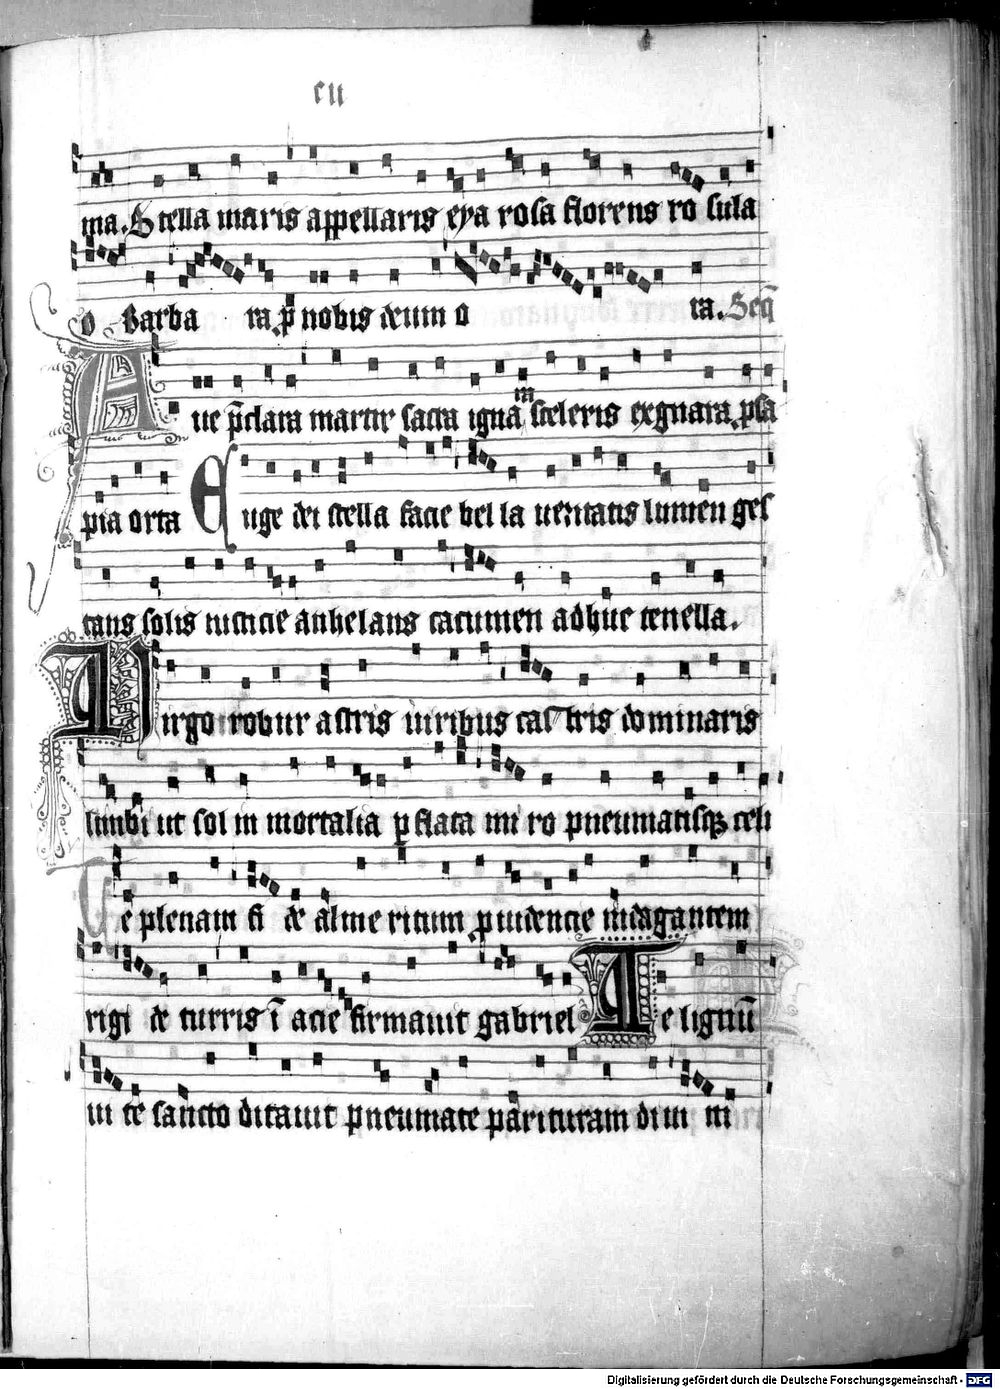 cu
ma. Stella maris appellaris eya rosa florens ro sula
o Barba ra p̄ nobis deum o ra. Seq̄
Aue p̄clara martir sacra igna m sceleris exgnara psa
pia orta Euge dei stella facie bel la ueritatis lumen ges
tans solis iusticie anhelans cacumen adhuc tenella.
Uirgo robur astris uiribus castris dominaris
limbi ut sol in mortalia pflata mi ro pneumatisq; celi
Te plenam fi de alme ritum puidencie indagantem
rigi de turris ī acie firmauit gabriel Te lignū
ui te sancto ditauit pneumate parituram diui ni
Digitalisierung gefördert durch die Deutsche Forschungsgemeinschaft - DFG